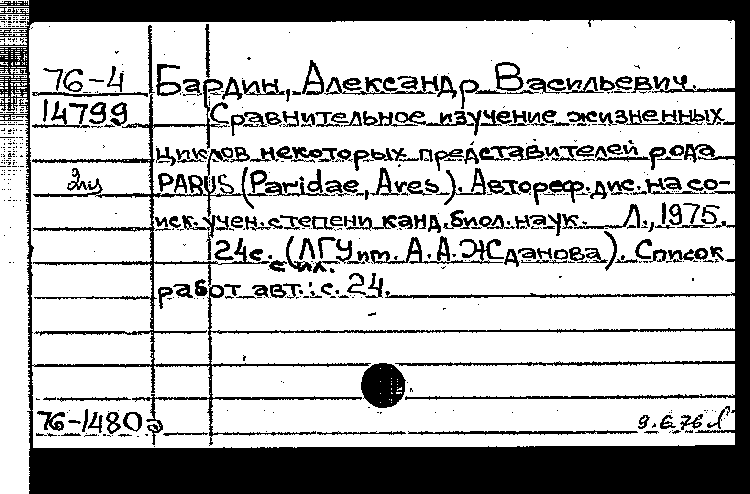 76-4 Бардин, Александр Васильевич.
14799 Сравнительное изучение жизненных
циклов некоторых представителей рода
2лиз PARUS (Paridae, Aves). Автореф. дис. на со-
иск. учен. степени канд. биол. наук. Л., 1975.
24с. (ЛГУ им. А.А. Жданова). Список
с ил.
работ авт.: с. 24.
76-1480а 9.6.76